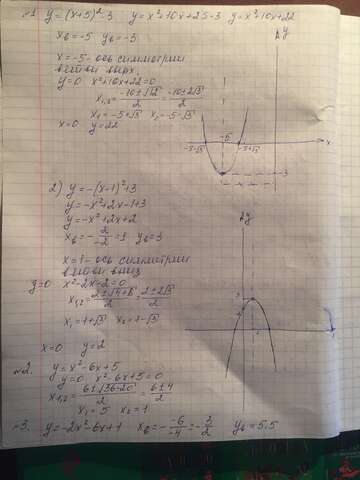 №1 y=(x+5)²-3 y=x²+10x+25-3 y=x²+10x+22
xв=-5 yв=-3
x=-5- ось симметрии
ветви вверх
y=0 x²+10x+22=0
x₁,₂=(-10±√12)/2=(-10±2√3)/2
x₁=-5+√3 x₂=-5-√3
x=0 y=22
y
-5
-5-√3
-5+√3
x
-3
2) y=-(x-1)²+3
y=-x²+2x-1+3
y=-x²+2x+2
xв=-2/-2=1 yв=3
x=1- ось симметрии
ветви вниз
y=0 x²-2x-2=0
x₁,₂=(2±√4+8)/2=(2±2√3)/2
x₁=1+√3 x₂=1-√3
x=0 y=2
y
№2. y=x²-6x+5
y=0 x²-6x+5=0
x₁,₂=(6±√36-20)/2=(6±4)/2
x₁=5 x₂=1
№3. y=-2x²-6x+1 xв=-(-6/-4)=-3/2 yв=5.5